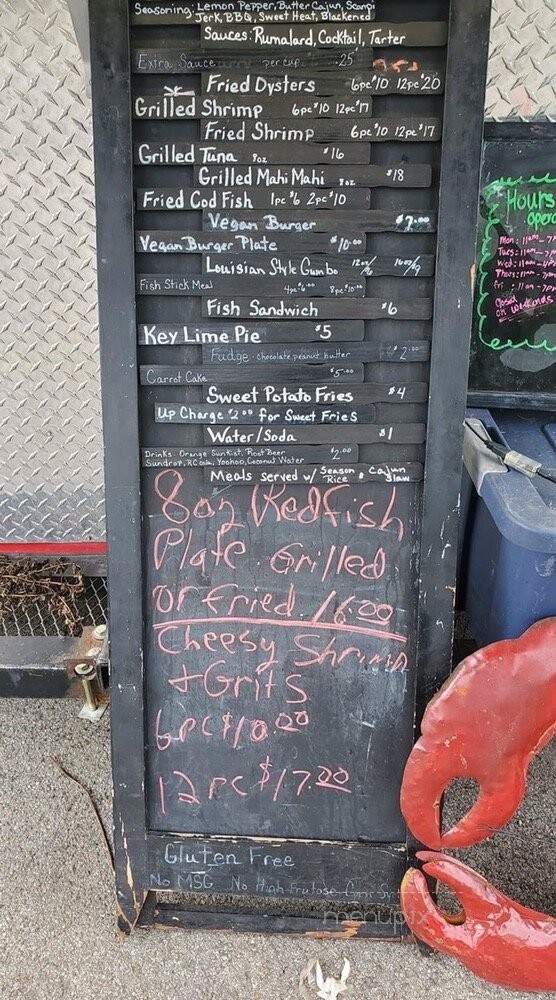 Seasoning: Lemon Pepper, Butter Cajun, Scampi
Jerk, BBQ, Sweet Heat, Blackened
Sauces: Rumalard, Cocktail, Tarter
Extra Sauce per cup .25
Fried Oysters 6pc $10 12pc $20
Grilled Shrimp 6pc $10 12pc $17
Fried Shrimp 6pc $10 12pc $17
Grilled Tuna 8oz $16
Grilled Mahi Mahi 8oz $18
Fried Cod Fish 1pc $6 2pc $10
Vegan Burger $7.00
Vegan Burger Plate $10.00
Louisian Style Gumbo 12oz/ 16oz/
Fish Stick Meal 4pc $6.00 8pc $10.00
Fish Sandwich $6
Key Lime Pie $5
Fudge - chocolate, peanut butter $2.00
Carrot Cake $5.00
Sweet Potato Fries $4
Up Charge $2.00 for Sweet Fries
Water/Soda $1
Drinks: Orange Sunkist, Root Beer $2.00
Sundrop, RC Cola, Yoohoo, Coconut Water
Meals Served w/ Season Rice & Cajun Slaw
8oz Redfish
Plate. Grilled
or Fried. 16.00
Cheesy Shrimp
+ Grits
6pc $10.00
12pc $17.00
Gluten Free
No MSG No High Frutose Corn
Hours
open
Mon: 11am - 7
Tues: 11am - 7
Wed: 11am -
Thurs: 11am - 7
Fri: 11am - 7pm
Closed
on weekends
menupix